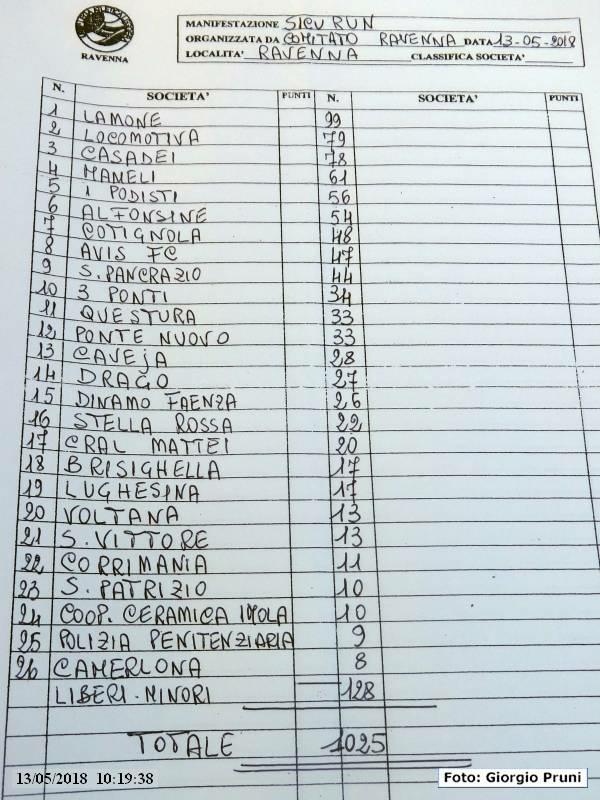 RAVENNA
MANIFESTAZIONE SICU RUN
ORGANIZZATA DA COMITATO RAVENNA DATA 13-05-2018
LOCALITA' RAVENNA CLASSIFICA SOCIETA'
N. SOCIETA' PUNTI N. SOCIETA' PUNTI
1 LAMONE 99
2 LOCOMOTIVA 79
3 CASADEI 78
4 MAMELI 61
5 I PODISTI 56
6 ALFONSINE 54
7 COTIGNOLA 48
8 AVIS FC 47
9 S. PANCRAZIO 44
10 3 PONTI 34
11 QUESTURA 33
12 PONTE NUOVO 33
13 CAVEJA 28
14 DRAGO 27
15 DINAMO FAENZA 26
16 STELLA ROSSA 22
17 CRAL MATTEI 20
18 BRISIGHELLA 17
19 LUGHESINA 17
20 VOLTANA 13
21 S. VITTORE 13
22 CORRIMANIA 11
23 S. PATRIZIO 10
24 COOP. CERAMICA IMOLA 10
25 POLIZIA PENITENZIARIA 9
26 CAMERLONA 8
LIBERI - MINORI 128
TOTALE 1025
13/05/2018 10:19:38
Foto: Giorgio Pruni